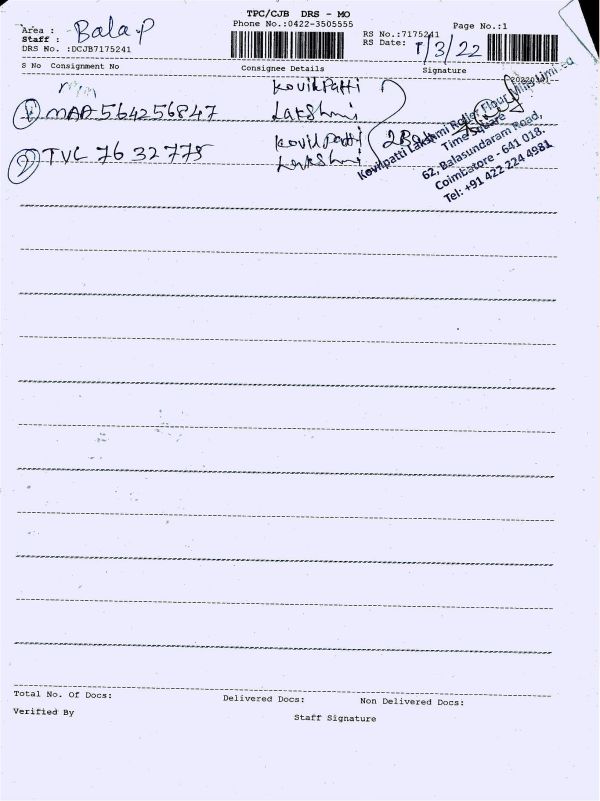 TPC/CJB DRS - MO
Phone No.:0422-3505555
Page No.:1
Area :
Staff : Bala P
DRS No. :DCJB7175241
RS No.:7175241
RS Date: 1/3/22
S No Consignment No Consignee Details Signature
① MAA 564256847 Kovilpatti
Lakshmi
② TVC 7632775 Kovilpatti
Lakshmi
Kovilpatti Lakshmi Roller Flour Mills Limited
Time Square
62, Balasundaram Road,
Coimbatore - 641 018.
Tel: +91 422 224 4981
Total No. Of Docs: Delivered Docs: Non Delivered Docs:
Verified By Staff Signature